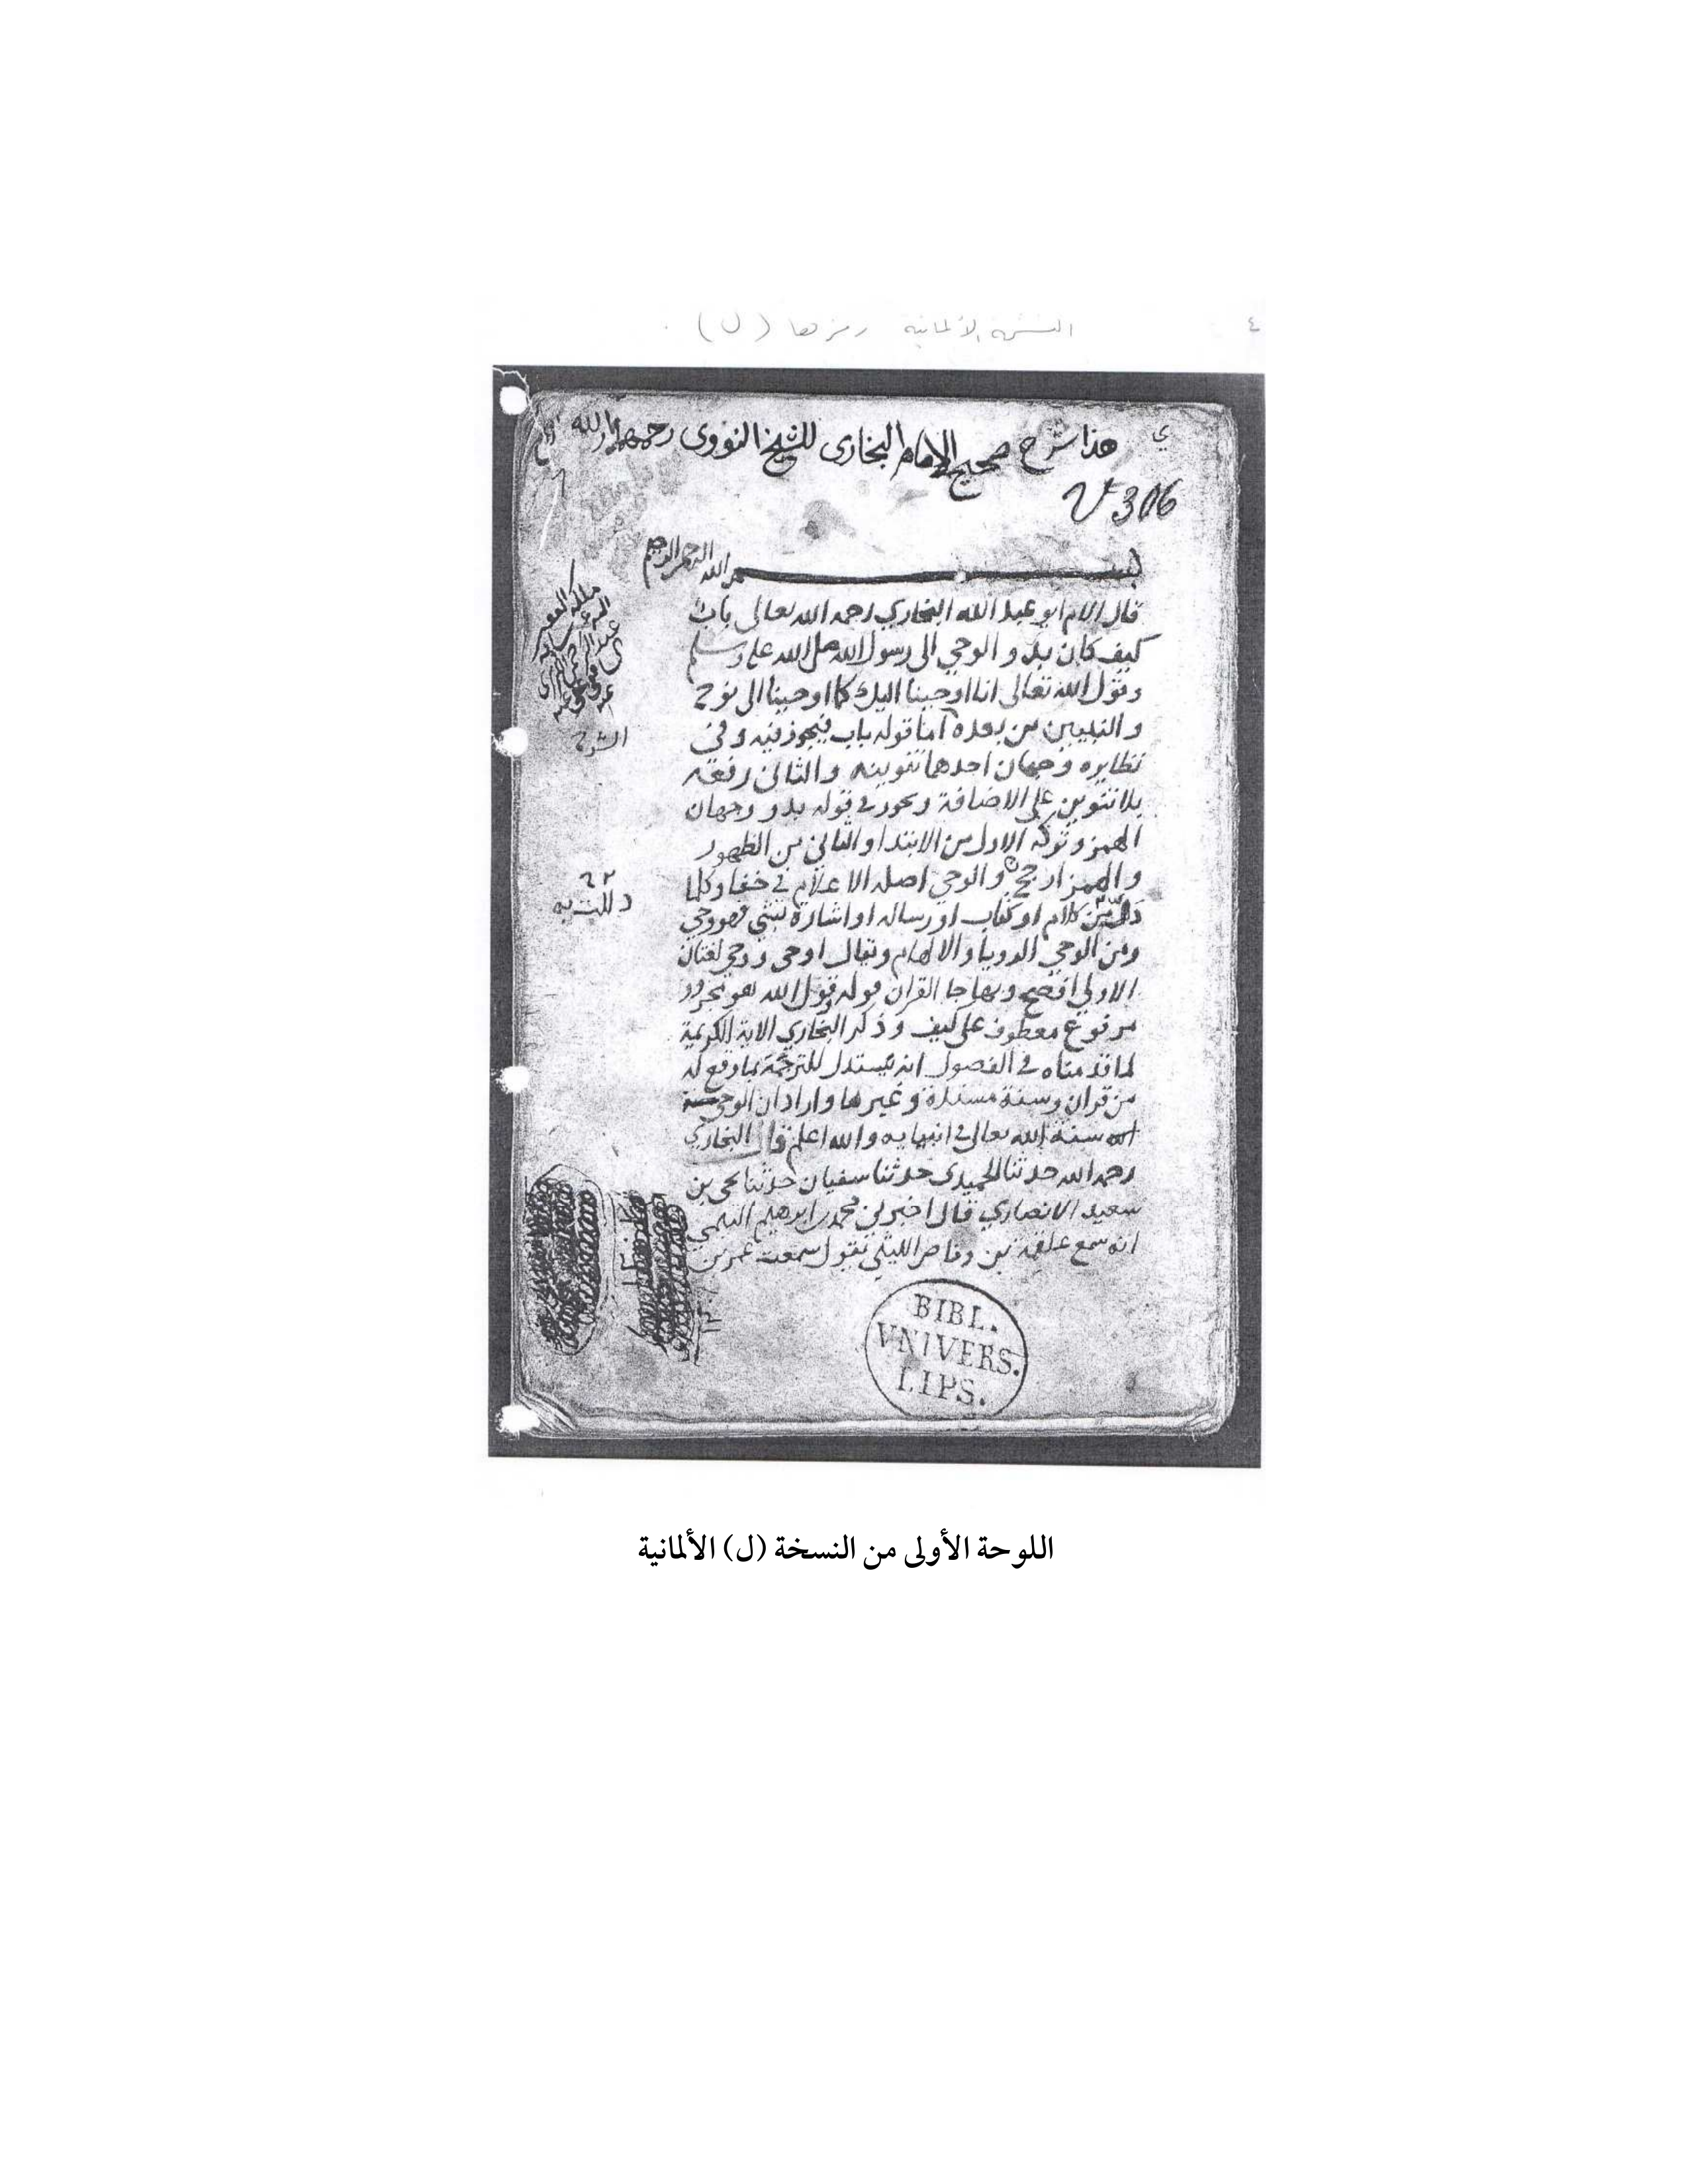 ٤
النسخة الألمانية رمزها (ل) .
هذا شرح صحيح الامام البخارى للشيخ النووى رحمهما الله
V 306
بسم الله الرحمن الرحيم
قال الامام ابو عبد الله البخاري رحمه الله تعالى باب
كيف كان بدو الوحي الى رسول الله صلى الله عليه وسلم
وقول الله تعالى انا اوحينا اليك كما اوحينا الى نوح
والنبيين من بعده اما قوله باب فيجوز فيه وفى
نظايره وجهان احدهما تنوينه والثانى رفعه
بلا تنوين على الاضافة ويجوز في قوله بدو وجهان
الهمز وتركه الاول من الابتدا والثاني من الظهور
والهمز ارجح والوحي اصله الاعلام في خفا وكلما
دل من كلام او كتاب او رساله او اشارة بشي فهو وحي
ومن الوحي الرويا والالهام ويقال اوحى ووحى لغتان
الاولى افصح وبها جا القران قوله وقول الله هو مجرور
مرفوع معطوف على كيف وذكر البخاري الاية الكريمة
لما قدمناه في الفصول انه يستدل للترجمة بما وقع له
من قران وسنة مسندة وغيرها واراد ان الوحي
سنة الله تعالى في انبيايه والله اعلم قال البخاري
رحمه الله حدثنا الحميدى حدثنا سفيان حدثنا يحيى بن
سعيد الانصاري قال اخبرني محمد بن ابرهيم التيمي
انه سمع علقمه بن وقاص الليثي يقول سمعت عمر بن
الشرح
BIBL.
VNIVERS.
LIPS.
اللوحة الأولى من النسخة (ل) الألمانية